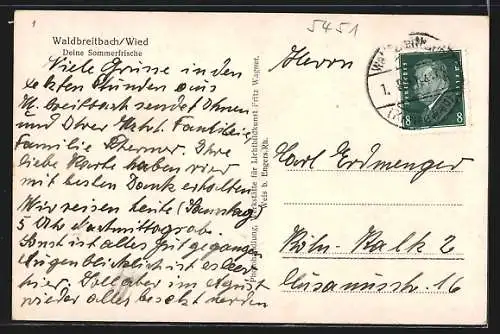 1
5451
Waldbreitbach/Wied
Deine Sommerfrische
Viele Grüsse in den
letzten Stunden aus
W. breitbach sendet Ihnen
und Ihrer Familie
Familie Ihre
liebe Karte haben wir
mit besten Dank erhalten
Wir reisen heute (Sonntag)
5 Uhr nachmittags ab.
Sonst ist alles gut gegangen
Augenblicklich ist es leer
hier. Soll aber im August
wieder alles besetzt werden
Werkstätte für Lichtbildkunst Fritz Wagner,
Weis b. Engers/Rh.
8 8
Herrn
Carl Erdmenger
Köln-Kalk 2
Cusanusstr. 16